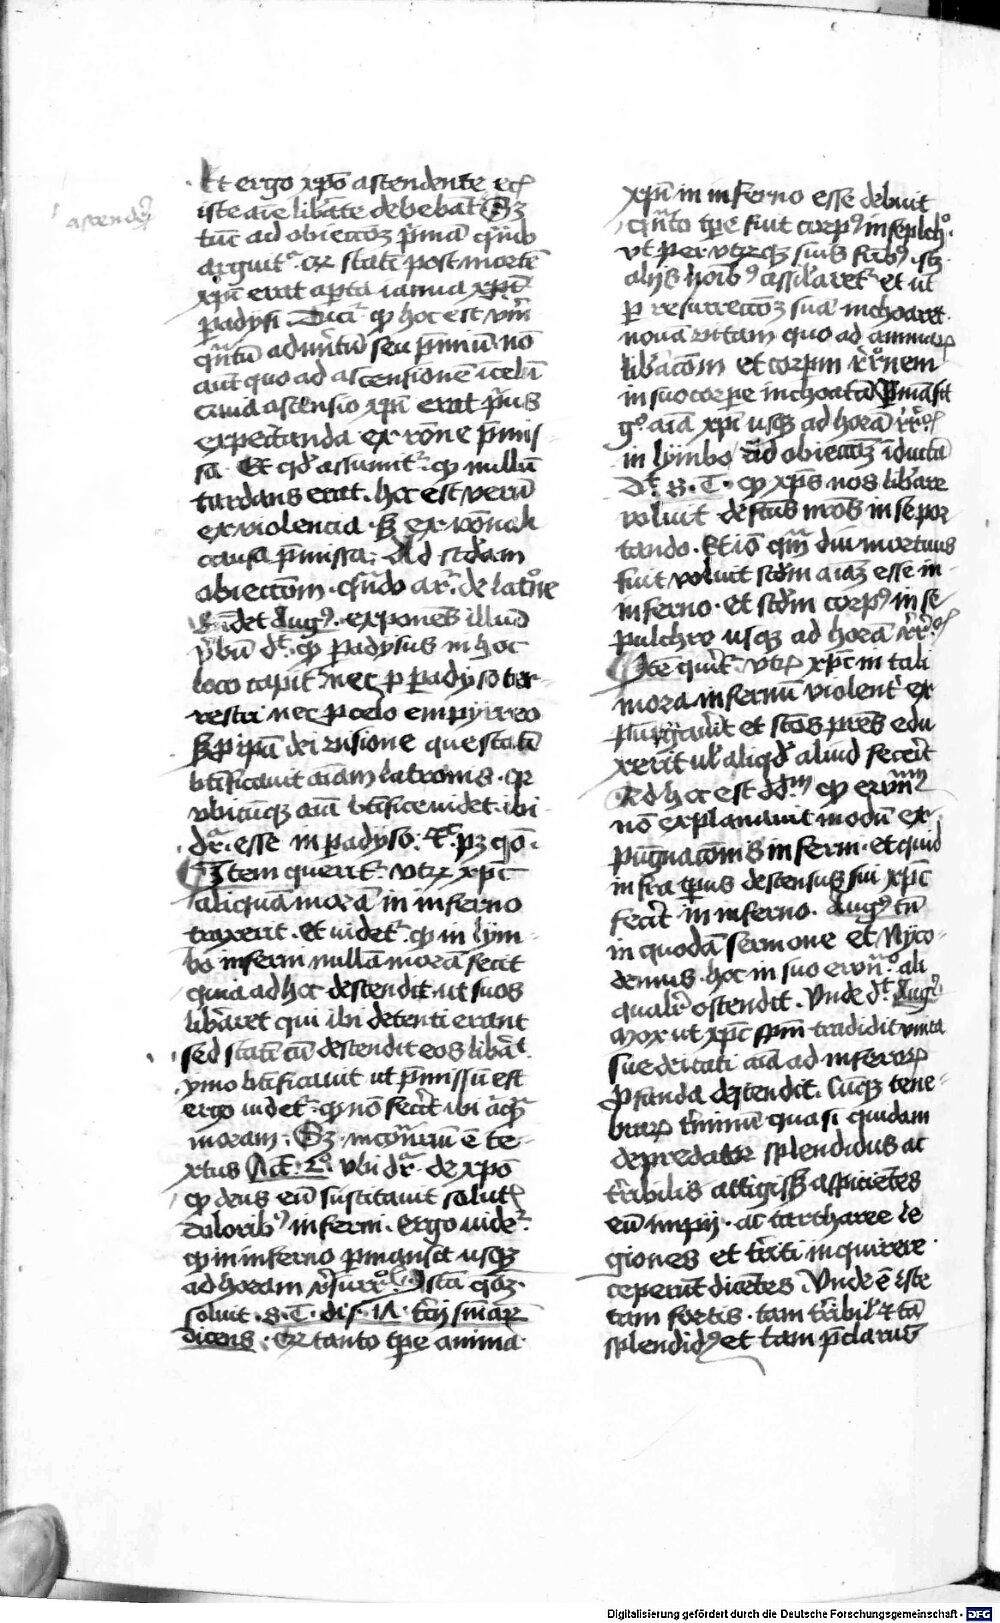 ascende͞
Et ergo xpo᷑ ascendente ec̄
iste aīe lib᷑ate debebāt Sz
tūc ad obiectōz p̄mā qn̄do
arguit᷑ · q᷑ statī post mortē
xpī erat ap̄ta ianua
p̄adysi · Dicit᷑ qꝫ hoc est vm̄
qn̄tū ad nō
aut quo ad ascensionē ī celū
cuius ascensio xpī erat p̄us
expectanda ex rōne p̄mis-
sa · Et qd᷑ assumit᷑ · qꝫ nullū
tardans erat · hoc est verū
ex violencia · Sꝫ ex rōnali
causa p̄missa · Ad scd᷑am
obiectōm · qn̄do ar᷑ · de latͦne
Rn̄det Augꝰ · exponens illud
v̄bū d᷑t · qꝫ p̄adysus in hoc
loco capit᷑ nec p p̄adyso ter-
restri nec p celo empyrreo
Sꝫ p ipā dei visione que statī
btīficauit aīam latronis · q᷑
vbicūqꝫ aīa btīfice videt · ibi
dr᷑ · esse in p̄adyso · pꝫ qō ·
Item querit᷑ · vtꝝ xpc̄
aliquā morā in inferno
traxerit · Et videt᷑ · qꝫ in lym-
bo inferni nullā morā fecit
quia ad hoc descendit · ut suos
lib᷑aret qui ibi detenti erant
sed statī cū descendit eos lib᷑aꝰ
ymo btīficauit ut p̄missū est
ergo videt᷑ · qꝫ nō fecit ibi aq̄
moram · Sꝫ · in ꝯ̄riū ē te-
xtus Act᷑ · 2º · vbi dr᷑ · de xpō
qꝫ deus eū suscitauit solutꝭ
doloribꝰ inferni · Ergo videt᷑
qꝫ in inferno p̄mansit usqꝫ
ad horam Istā qōꝫ ·
soluit · S · T · dis ·
dicens · q᷑ tanto tp̄e anima
xpī in inferno esse debuit
qn̄to tp̄e fuit corpꝰ in seplchº ·
vt per vtrūqꝫ suis frībꝰ · scꝫ
alijs hoībꝰ assilaret᷑ · et ut
p resurrectōꝫ suā inchoaret
nouā vitam quo ad animaꝝ
lib᷑acōm et corpum rr᷑onem
in suo corpe inchoatā p̄māsit
gº aīa xpī usqꝫ ad horā rr᷑oꝭ
in lymbo Ad obiectōꝫ īductā
D᷑t · S · T · qꝫ xpc̄ nos lib᷑are
voluit defectus nrōs in se por
tando · Et iō qm̄ diu mortuus
fuit voluit scd᷑m aīaꝫ esse in
inferno · et scd᷑m corpꝰ in se
pulchro usqꝫ ad horā rr᷑oꝭ
Ite querit᷑ · vtꝝ xpc̄ in tali
mora infernū violenter ex
pungnauit et scōs pres edu
xerit ul᷑ aliqd᷑ aliud fecerit
Ad hoc est qꝫ
nō explanauit modū ex-
pugnacōnis inferni · et quid
infra tp̄us descensus sui xpc̄
fecerit in inferno · Augꝰ tn̄
in quodā sermone et Nyco-
demus · hoc in suo ali
qualit᷑ ostendit · Vnde d᷑t Augꝰ
Mox ut xpc̄ spm̄ tradidit vnita
sue deitati aīa ad inferorꝝ
p̄funda descendit · Cūqꝫ tene-
braꝝ t᷑minū quasi quidam
depredator splendidus ac
t᷑ribilis attigisꝫ aspicietes
eū impij · ac tartharee le
giones et t᷑riti inquirere
ceperūt dicētes · Vnde ē iste
tam fortis · tam t᷑ribil᷑ · tā
splendidꝰ et tam p̄clarus
Digitalisierung gefördert durch die Deutsche Forschungsgemeinschaft - DFG